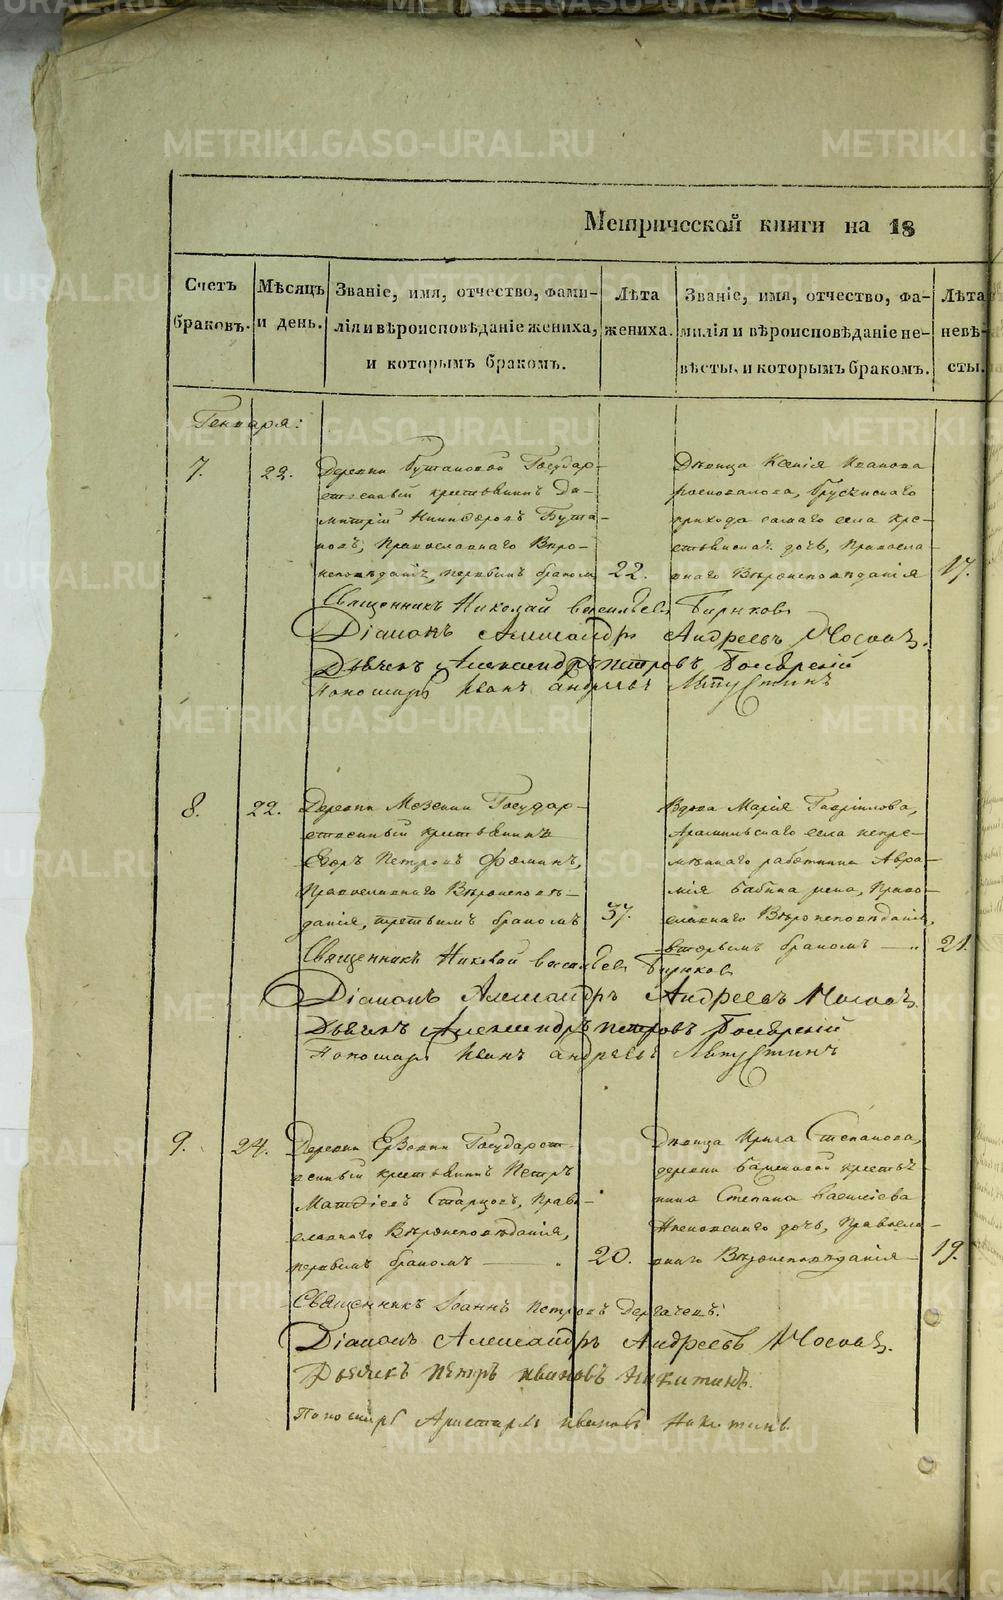 Метрической книги на 18
Счетъ браковъ.
Мѣсяцъ и день.
Званіе, имя, отчество, фами-
лія и вѣроисповѣданіе жениха,
и которымъ бракомъ.
Лѣта
жениха.
Званіе, имя, отчество, фа-
милія и вѣроисповѣданіе не-
вѣсты, и которымъ бракомъ.
Лѣта
невѣ-
сты.
Генваря:
7.
22.
Деревни Государ-
ственный крестьянинъ Ди-
митрій Никифоровъ
Православнаго Вѣро-
исповѣданія, первымъ бракомъ
22.
Дѣвица Ксенія Иванова
прихода самаго села кре-
стьянская дочь, Правосла-
внаго Вѣроисповѣданія
17.
Священникъ Николай Васильевъ Бирюковъ
Діаконъ Александръ Андреевъ
Дьячекъ Александръ Петровъ Боярскій
Пономарь Иванъ Андреевъ
8.
22.
Деревни Мезенки Государ-
ственный крестьянинъ
Егоръ Петровъ Ѳоминъ,
Православнаго Вѣроисповѣ-
данія, третьимъ бракомъ
37.
Вдова Марія Гавріилова,
Арамильскаго села непре-
мѣннаго работника Авра-
мія Бабина жена, Право-
славнаго Вѣроисповѣданія,
вторымъ бракомъ —
21.
Священникъ Николай Васильевъ Бирюковъ
Діаконъ Александръ Андреевъ
Дьячекъ Александръ Петровъ Боярскій
Пономарь Иванъ Андреевъ
9.
24.
Деревни Государст-
венный крестьянинъ Петръ
Матѳіевъ Старцовъ, Право-
славнаго Вѣроисповѣданія,
первымъ бракомъ —
20.
Дѣвица Ирина Степанова,
деревни крестья-
нина Степана Василіева
дочь, Правосла-
внаго Вѣроисповѣданія
19.
Священникъ Іоаннъ Петровъ Дергачевъ.
Діаконъ Александръ Андреевъ
Дьячекъ Петръ Ивановъ Никитинъ.
Пономарь Аристархъ Ивановъ Никитинъ.
METRIKI.GASO-URAL.RU